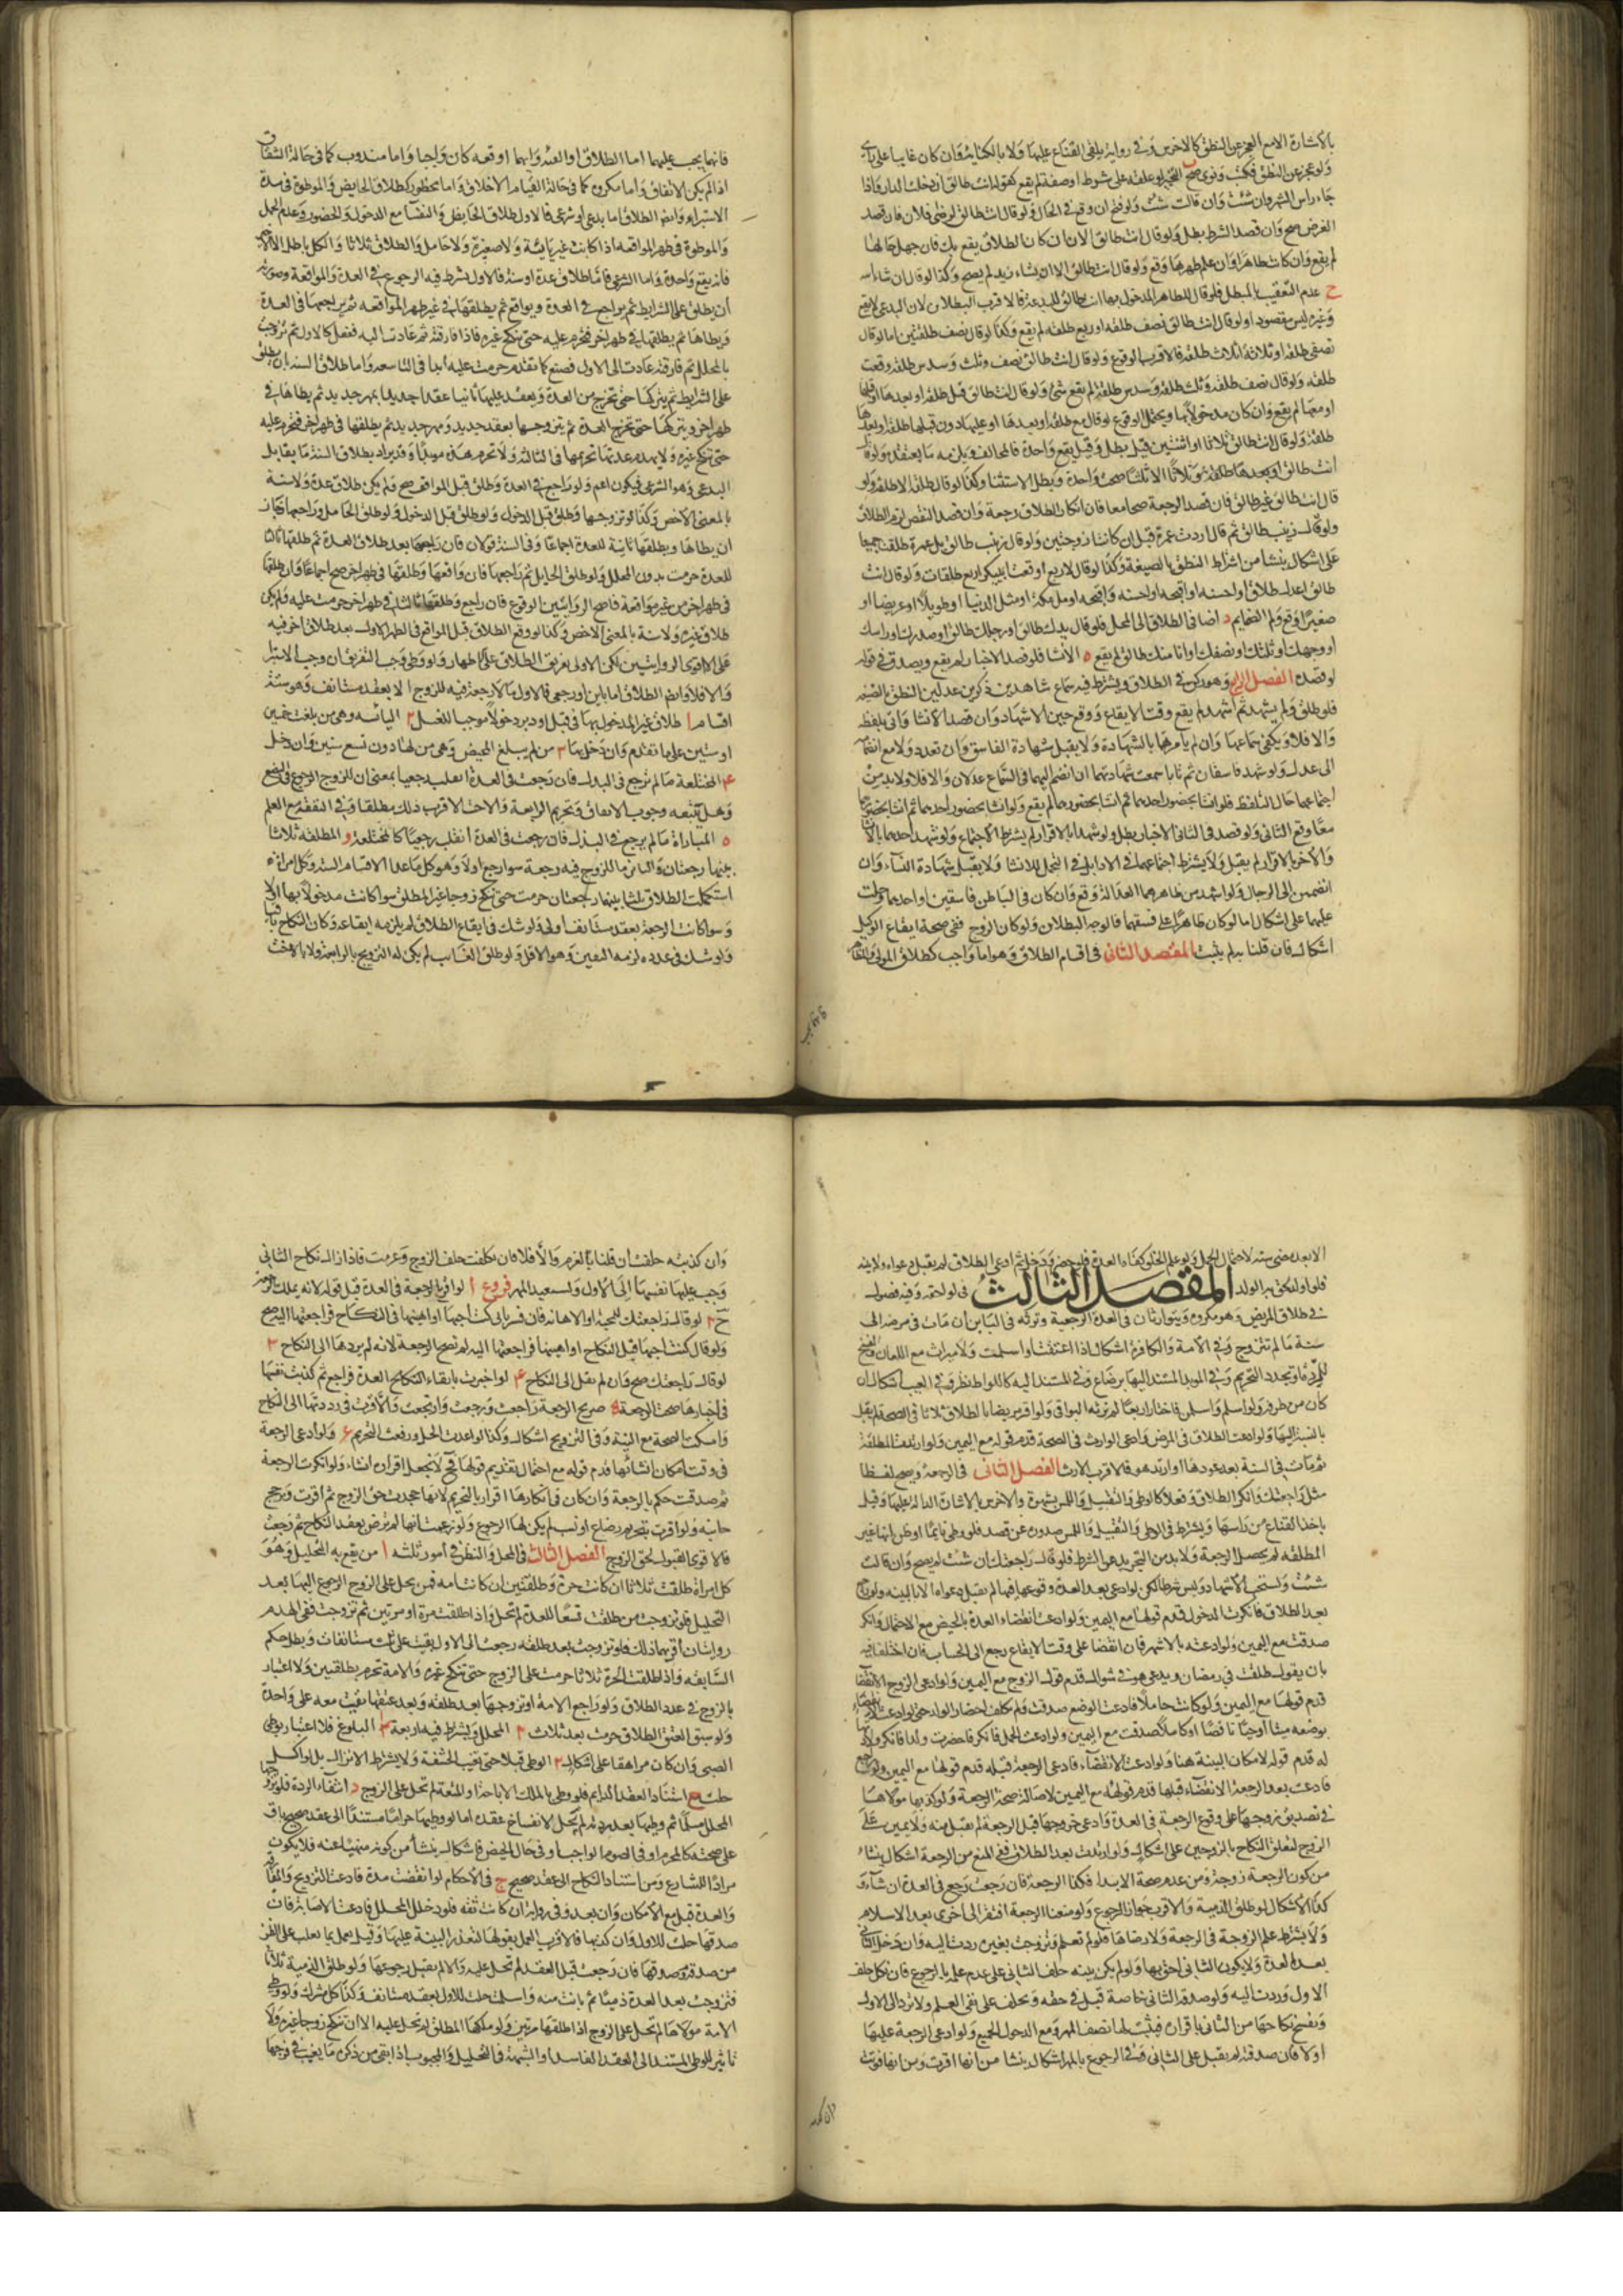 بالاشارة الا مع العجز عن النطق كالاخرس وفي رواية يلقى القناع عليها ولا بالكتابة وان كان غائبا على راي
ولو عجز عن النطق فكتب ونوى صح التجيز لو علقه على شرط او صفة لم يقع كقوله انت طالق ان دخلت الدار واذا
جاء راس الشهر وان شئت وان قالت شئت ولو فتح ان وقع في الحال ولو قال انت طالق لرضى فلان فان قصد
الغرض صح وان قصد الشرط بطل ولو قال انت طالق الان ان كان الطلاق يقع بك فان جهل حالها
لم يقع وان كانت طاهرا وان علم طهرها وقع ولو قال انت طالق الا ان يشاء زيد لم يصح وكذا لو قال ان شاء الله
ج عدم التعقيب بالمبطل فلو قال للطاهر المدخول بها انت طالق للبدعة فالاقرب البطلان لان البدعي لا يقع
وغيره ليس مقصودا ولو قال انت طالق نصف طلقة او ربع طلقة لم يقع وكذا لو قال نصف طلقتين اما لو قال
نصفي طلقة او ثلاثة اثلاث طلقة فالاقرب الوقوع ولو قال انت طالق نصف وثلث وسدس طلقة وقعت
طلقة ولو قال نصف طلقة وثلث طلقة وسدس طلقة لم يقع شئ ولو قال انت طالق قبل طلقة او بعدها او قبلها
او معها لم يقع وان كان مدخولا بها ويحتمل الوقوع لو قال مع طلقة او بعدها او عليها دون قبلها طلقة او بعدها
طلقة ولو قال انت طالق ثلاثا او اثنتين قيل يطل وقيل يقع واحدة فالمخالف يلزمه ما يعتقده ولو قال
قال انت طالق غير طالق فان قصد الرجعة صحا معا فان انكار الطلاق رجعة وان قصد النقض لزم الطلاق
ولو قال زينب طالق ثم قال اردت عمرة قبل ان كانتا زوجتين ولو قال زينب طالق بل عمرة طلقتا جميعا
على اشكال ينشا من اشراط النطق بالصيغة وكذا لو قال لاربع اوقعت بينكن اربع طلقات ولو قال انت
طالق اعدل طلاق او احسنه او اقبحه او احسنه واقبحه او مل مكة او مثل الدنيا او طويلا او عريضا او
صغيرا وقع ولم الضمايم د اضافة الطلاق الى المحل فلو قال يدك طالق او رجلك طالق او صدرك او راسك
او وجهك او ثلثك او نصفك او انا منك طالق لم يقع ه الانشا فلو قصد الاخبار لم يقع ويصدق في قوله
لو قصده الفصل الرابع وهو ركن في الطلاق ويشترط فيه سماع شاهدين ذكرين عدلين النطق بالصيغة
فلو طلق ولم يشهد ثم اشهد لم يقع وقت الايقاع ووقع حين الاشهاد وان قصد الانشا واتى بلفظه
والا فلا ويكفي سماعها وان لم يامرهما بالشهادة ولا يقبل شهادة الفاسق وان تعدد ولا مع انضمامه
الى عدل ولو شهد فاسقان ثم تابا سمعت شهادتهما ان انضم اليهما في السماع عدلان والا فلا ولا بد من
اجتماعهما حال التلفظ فلو انشا بحضور احدهما ثم انشا بحضورهما لم يقع ولو انشا بحضور احدهما ثم انشا بحضورهما
معا وقع الثاني ولو قصد في الثاني الاخبار بطل ولو شهدا بالاقرار لم يشترط الاجتماع ولو شهد احدهما بالانشا
والاخر بالاقرار لم يقبل ولا يشترط اجتماعهما في الاداء بل في التحمل للانشا ولا يقبل شهادة النساء وان
انضممن الى الرجال ولو اشهد من ظاهرهما العدالة وقع وان كان في الباطن فاسقين او احدهما وحلت
عليهما على اشكال اما لو كان ظاهرا على فسقهما فالوجه البطلان ولو كان الزوج ففي صحة ايقاع الوكيل
اشكال فان قلنا به لم يثبت المقصد الثاني في اقسام الطلاق وهو اما واجب كطلاق المولى والمظاهر
فانه يجب عليهما اما الطلاق او الفئة وايهما اوقعه كان واجبا واما مندوب كما في حالة الشقاق
اذا لم يكن الاتفاق واما مكروه كما في حالة القيام الاخلاق واما محظور كطلاق الحايض والموطوة في مدة
الاستبراء وايضا الطلاق اما بدعي او شرعي فالاول طلاق الحايض والنفسا مع الدخول والحضور وعدم الحمل
والموطوة في طهر المواقعة اذا كانت غير يائسة ولا صغيرة ولا حامل والطلاق ثلاثا والكل باطل الا الاخير
فانه يقع واحدة واما الشرعي فاما طلاق عدة او سنة فالاول شرط فيه الرجوع في العدة والمواقعة وصورته
ان يطلق على الشرايط ثم يراجع في العدة ويواقع ثم يطلقها في غير طهر المواقعة ثم يراجعها في العدة
ويطاها ثم يطلقها في طهر اخر فتحرم عليه حتى تنكح غيره فاذا فارقته ثم عادت اليه ففعل كالاول ثم تزوجت
بالمحلل ثم فارقته عادت الى الاول فصنع كما تقدم حرمت عليه ابدا في التاسعة واما طلاق السنة ان يطلق
على الشرايط ثم يتركها حتى تخرج من العدة ويعقد عليها ثانيا عقدا جديدا بمهر جديد ثم يطاها في
طهر اخر ويتركها حتى تخرج العدة ثم يتزوجها بعقد جديد ومهر جديد ثم يطلقها في طهر اخر فتحرم عليه
حتى تنكح غيره ولا يهدم عدتها تحريمها في الثالثة ولا تحرم هذه مؤبدا وقد يراد بطلاق السنة ما يقابل
البدعي وهو الشرعي فيكون اعم ولو راجع في العدة وطلق قبل المواقعة صح ولم يكن طلاق عدة ولا سنة
بالمعنى الاخص وكذا لو تزوجها وطلق قبل الدخول ولو طلق قبل الدخول ولو طلق الحامل وراجعها جاز
ان يطاها ويطلقها ثانية للعدة اجماعا وفي السنة قولان فان راجعها بعد طلاق العدة ثم طلقها ثالثا
للعدة حرمت بدون المحلل ولو طلق الحايل ثم راجعها فان واقعها وطلقها في طهر اخر صح اجماعا وان طلقها
في طهر اخر من غير مواقعة فاصح الروايتين الوقوع فان راجع وطلقها ثالثا في طهر اخر حرمت عليه ولم يكن
طلاق عدة ولا سنة بالمعنى الاخص وكذا لو وقع الطلاق قبل المواقعة في الطهر الاول بعد طلاق اخر فيه
على اقوى الروايتين لكن الاولى تفريق الطلاق على الاطهار ولو وطئ وجب التفريق ان وجب الاستبرا
والا فلا وايضا الطلاق اما باين او رجعي فالاول ما لا رجعة فيه للزوج الا بعقد مستانف وهو ستة
اقسام ا طلاق غير المدخول بها في قبل او دبر دخولا موجبا للغسل ٢ اليائسة وهي من بلغت خمسين
او ستين على ما تقدم وان دخل بها ٣ من لم يبلغ المحيض وهي من لها دون تسع سنين وان دخل
٤ المختلعة ما لم ترجع في البدل فان رجعت في العدة انقلب رجعيا بمعنى ان للزوج الرجوع في البضع
وهل يتبعه وجوب الانفاق وتحريم الرابعة والاخت الاقرب ذلك مطلقا وفي النفقة مع العلم
٥ المباراة ما لم يرجع في البذل فان رجعت في العدة انقلب رجعيا كالمختلعة و المطلقة ثلاثا
بينها رجعتان والثاني ما للزوج فيه رجعة سوا رجع اولا وهو كل ما عدا الاقسام الستة وكل امراة
استكملت الطلاق ثلثا بينها رجعتان حرمت حتى تنكح زوجا غير المطلق سوا كانت مدخولا بها او لا
وسوا كانت الرجعة بعقد مستانف او لا ولو شك في ايقاع الطلاق لم يلزمه ايقاعه وكان النكاح باقيا
ولو شك في عدده لزمه اليقين وهو الاقل ولو طلق الغايب لم يكن له التزويج بالرابعة ولا بالاخت
الا بعد مضي سنة لاحتمال الحمل ولو علم الخلو كفاه العدة فلو حضر ودخل ثم ادعى الطلاق لم يقبل دعواه ولا بينه
فلو اولد لحق به الولد المقصد الثالث في لواحقه وفيه فصول
في طلاق المريض وهو مكروه ويتوارثان في العدة الرجعية وترثه في الباين ان مات في مرضه الى
سنة ما لم تتزوج وفي الامة والكافرة اشكال اذا اعتقت او اسلمت ولا ميراث مع اللعان والفسخ
كان من طرفه ولو اسلم واسلمن فاختار اربعا لم ترثه البواقي ولو اقر مريضا بالطلاق ثلاثا في الصحة لم يقبل
بالنسبة اليها ولو ادعت الطلاق في المرض وادعى الوارث في الصحة قدم قوله مع اليمين ولو ارتدت المطلقة
ثم مات في السنة بعد عودها او ارتد هو فالاقرب الارث الفصل الثاني في الرجعة ويصح لفظا
مثل راجعتك وانكر الطلاق وفعلا كالوطي والتقبيل واللمس بشهوة والاخرس بالاشارة الدالة عليها وقيل
باخذ القناع من راسها ويشترط في الوطي والتقبيل واللمس صدوره عن قصد فلو وطئ نائما او ظن انها غير
المطلقة لم يحصل الرجعة ولا بد من التجريد عن الشرط فلو قال راجعتك ان شئت لم يصح وان قالت
شئت ويستحب الاشهاد وليس شرطا لكن لو ادعى بعد العدة وقوعها فيها لم تقبل دعواه الا بالبينة ولو راجع
بعد الطلاق فانكرت الدخول قدم قولها مع اليمين ولو ادعت انقضاء العدة بالحيض مع الاحتمال وانكر
صدقت مع اليمين ولو ادعته بالاشهر فان اتفقا على وقت الايقاع رجع الى الحساب فان اختلفا فيه
بان يقول طلقت في رمضان ويدعي هو في شوال قدم قول الزوج مع اليمين ولو ادعى الزوج الانقضا
قدم قولها مع اليمين ولو كانت حاملا فادعت الوضع صدقت ولم تكلف احضار الولد حتى لو ادعت
بوضعه ميتا او حيا ناقصا او كاملا صدقت مع اليمين ولو ادعت الحمل فانكر فاحضرت ولدا فانكر ولادتها
له قدم قوله لامكان البينة هنا ولو ادعت الانقضاء فادعى الرجعة قبله قدم قولها مع اليمين ولو راجع
فادعت بعد الرجعة الانقضاء قبلها قدم قوله مع اليمين لاصالة صحة الرجعة ولو كذبها مولاها
في تصديق زوجها على وقوع الرجعة في العدة وادعى خروجها قبل الرجعة لم يقبل منه ولا يمين على
الزوج لتعلق النكاح بالزوجين على اشكال ولو ارتدت بعد الطلاق ففي المنع من الرجعة اشكال ينشا
من كون الرجعة زوجة ومن عدم صحة الابتدا فكذا الرجعة فان رجعت رجع في العدة ان شاء و
كذا الاشكال لو طلق الذمية والاقرب جواز الرجوع ولو منعنا الرجعة افتقر الى اخرى بعد الاسلام
ولا يشترط علم الزوجة في الرجعة ولا رضاها فلو لم تعلم وتزوجت بغيره ردت اليه وان دخل الثاني
بعد العدة ولا يكون الثاني احق بها ولو لم يكن بينة حلف الثاني على عدم علمه بالرجوع فان نكل حلف
الاول وردت اليه ولو صدقه الثاني خاصة قبل في حقه ويحلف على نفي العلم ولا ترد الى الاول
وتفسخ نكاحها من الثاني باقراره فيثبت لها نصف المهر ومع الدخول الجميع ولو ادعى الرجعة عليها
او لا فان صدقته لم يقبل على الثاني وفي الرجوع بالمهر اشكال ينشا من انها اقرت ومن انها فوتت
وان كذبته حلفت ان قلنا بالغرم والا فلا فان نكلت حلف الزوج وغرمت فاذا زال نكاح الثاني
وجب عليها نفسها الى الاول وتستعيد المهر فروع ا لو اقر بالرجعة في العدة قبل قوله لانه يملك الرجوع
ح ٢ لو قال راجعتك للمحبة او الاهانة فان فسر باني كنت احبها او اهينها في النكاح فراجعتها اليه صح
ولو قال كنت احبها قبل النكاح او اهينها فراجعتها اليه لم تصح الرجعة لانه لم يردها الى النكاح ٣
لو قال راجعتك صح وان لم يقل الى النكاح ٤ لو اخبرت بانقضاء العدة فراجع ثم كذبت نفسها
في اخبارها صحت الرجعة ٥ صريح الرجعة راجعت ورجعت وارتجعت والاقرب في رددتها الى النكاح
وامسكت الصحة مع النية وفي التزويج اشكال وكذا لو اعدت الحل ورفعت التحريم ۶ ولو ادعى الرجعة
في وقت امكان انشائها قدم قوله مع احتمال تقديم قولها فح لا نجعل اقراره انشاء ولو انكرت الرجعة
ثم صدقت حكم بالرجعة وان كان في انكارها اقرار بالتحريم لانها جحدت حق الزوج ثم اقرت ويرجح
جانبه ولو اقرت بتحريم رضاع او نسب لم يكن لها الرجوع ولو زعمت انها لم ترض بعقد النكاح ثم رجعت
فالاقوى القبول لحق الزوج الفصل الثالث في المحلل والنظر في امور ثلثة ا من يقع به التحليل وهو
كل امراة طلقت ثلاثا ان كانت حرة وطلقتين ان كانت امة فمن يحل على الزوج الرجوع اليها بعد
التحليل فلو تزوجت من طلقت تسعا للعدة لم تحل واذا طلقت مرة او مرتين ثم تزوجت ففي الهدم
روايتان اقربهما ذلك فلو تزوجت بعد طلقة رجعت الى الاول بقيت على ثلث مستانفات وبطل حكم
السابقة واذا طلقت الحرة ثلاثا حرمت على الزوج حتى تنكح غيره والامة تحرم بطلقتين ولا اعتبار
بالزوج في عدد الطلاق ولو راجع الامة او تزوجها بعد طلقة وبعد عتقها بقيت معه على واحدة
ولو سبق العتق الطلاق حرمت بعد ثلاث ٢ المحلل ويشترط فيه اربعة ا البلوغ فلا اعتبار بوطي
الصبي وان كان مراهقا على اشكال ٢ الوطي قبلا حتى تغيب الحشفة ولا يشترط الانزال بل لو اكسل
حلت ج استناده العقد الدايم فلو وطئ بالملك او الاباحة او المتعة لم تحل على الزوج د انتفاء الردة فلو تزوجها
المحلل مسلما ثم وطئها بعد ردته لم تحل لانفساخ عقده اما لو وطئها حراما مستندا الى عقد صحيح باق
على صحته كالمحرم او في الصوم الواجب او في حال الحيض فاشكال ينشا من كونه منهيا عنه فلا يكون
مرادا للشارع ومن استناد النكاح الى عقد صحيح ج في الاحكام لو انقضت مدة فادعت التزويج والمفارقة
والعدة قبل مع الامكان وان بعد وفي رواية ان كانت ثقة فلو دخل المحلل فادعت الاصابة فان
صدقها حلت للاول وان كذبها فالاقرب العمل بقولها لتعذر البينة عليها وقيل يعمل بما يغلب على الظن
من صدقه وصدقها فان رجعت قبل العقد لم تحل عليه والا لم يقبل رجوعها ولو طلق الذمية ثلاثا
فتزوجت بعد العدة ذميا ثم بانت منه واسلمت حلت للاول بعقد مستانف وكذا كل مشرك ولو وطئ
الامة مولاها لم تحل على الزوج اذا طلقها مرتين ولو ملكها المطلق لم تحل عليه الا ان تنكح زوجا غيره ولا
تاثير للوطي المستند الى العقد الفاسد او الشبهة في التحليل والمجبوب اذا ابقي من ذكره ما يغيب في فرجها